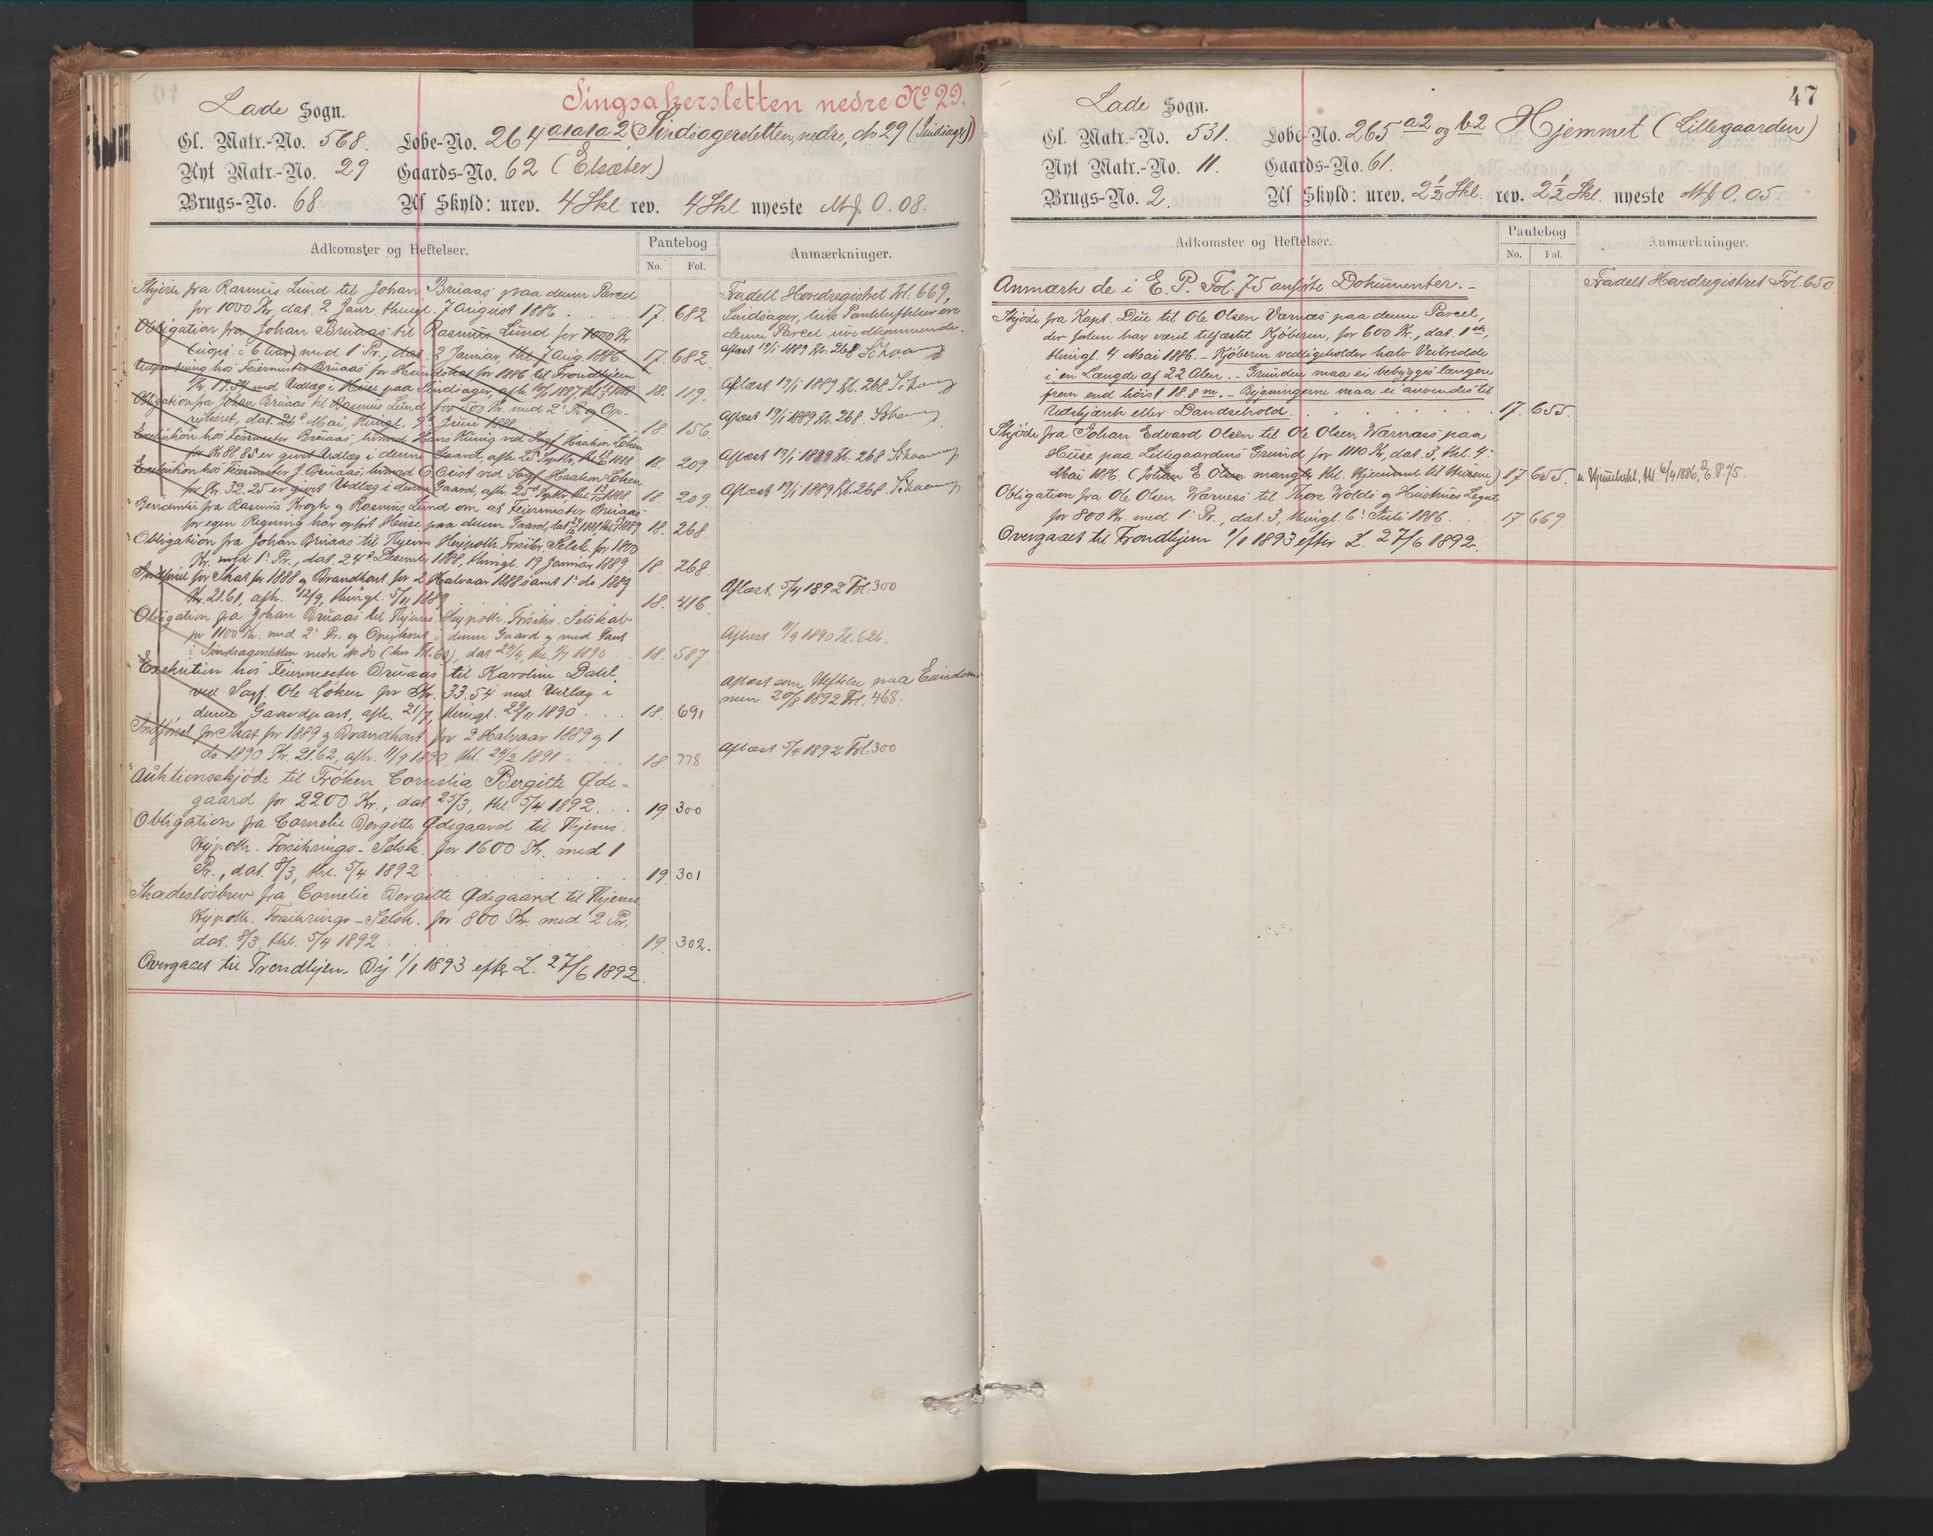 Singsakersletten nedre No 29.
Lade Sogn.
Gl. Matr.-No. 568. Løbe-No. 264 a1a1a2 (Sindsagersletten, nedre, No 29 (Sindsager))
Nyt Matr.-No. 29 Gaards-No. 62 (Elsæter)
Brugs-No. 68 Af Skyld: urev. 4 Skl rev. 4 Skl nyeste Mk 0.08.
Adkomster og Heftelser. Pantebog No. Fol. Anmærkninger.
Skjøde fra Rasmus Lund til Johan Bruaas paa denne Parcel
for 1000 Kr, dat. 2 Janr. thingl. 7 August 1886 17 682.
Fradelt Hovedregistret Fol. 669,
Sindsager, hvis Pantheftelser er
denne Parcel uvedkommende.
Obligation fra Johan Bruaas til Rasmus Lund for 1000 Kr.
(uops. i 6 Aar) med 1 Pr., dat. 2 Januar, thl. 7 Aug. 1886 17. 682. Aflæst 19/1 1889 Fol. 268
hos Feiermester Bruaas for Hundeskat for 1886 til Trondhjem
Kr. med Udlæg i Huse paa Sindsager, afh. 1887, thl. 1888 18. 119. Aflæst 19/1 1889 Fol. 268
Obligation fra Johan Bruaas til Rasmus Lund for 500 Kr. med 2 Pr. og Op-
reisret, dat. 26 Mai, thingl. 9 Juni 1888. 18 156. Aflæst 19/1 1889 Fol. 268
Exekution hos Feiermester Bruaas, hvorved Hans Kunig ved Sagf. Haakon Løken
for Kr. 88.85 er givet Udlæg i denne Gaard, afh. 25 Septbr., thl. 1888 18. 209. Aflæst 19/1 1889 Fol. 268
Exekution hos Feiermester J. Bruaas, hvorved O. Qust ved Sagf. Haakon Løken
for Kr. 32.25 er givet Udlæg i denne Gaard, afh. 25 Septbr., thl. 1888 18 209. Aflæst 19/1 1889 Fol. 268
fra Rasmus Krogh og Rasmus Lund om at Feiermester Bruaas
for egen Regning har opført Huse paa denne Gaard, 1889 18. 268.
Obligation fra Johan Bruaas til Thjems Hypoth. Forsikr. Selsk. for 1800
Kr. med 1 Pr., dat. 24 Desember 1888, thingl. 19 Januar 1889. 18. 268.
Indførsel for Skat for 1888 og Brandkont. for 2 Halvaar 1888 samt 1 do. 1889
Kr. 21.61, afh. 12/9, thingl. 5/11 1889 18. 416. Aflæst 5/4 1892 Fol. 300
Obligation fra Johan Bruaas til Thjems. Hypoth. Forsikr. Selskab
for 1100 Kr. med 2 Pr. og i denne Gaard og med Pant
i Sindsagersletten nedre No 30 1890 18. 587. Aflæst 9/9 1890 Fol. 626.
Exekution hos Feiermester Bruaas til Karoline Dahl
ved Sagf. Ole Løken for Kr. 33.54 med Udlæg i
denne Gaardpart, afh. 21/7, thingl. 22/11 1890 18. 691 Aflæst som Heftelse paa Eiendom-
men 20/8 1892 Fol. 468.
Indførsel for Skat for 1889 og Brandkont. for 2 Halvaar 1889 og 1
do 1890 Kr. 21.62, afh. 11/9 1890, thl. 24/2 1891. 18 778 Aflæst 5/4 1892 Fol. 300
Auktionsskjøde til Frøken Cornelia Bergitte Øde-
gaard for 2200 Kr., dat. 25/3, thl. 5/4 1892. 19. 300
Obligation fra Cornelie Bergitte Ødegaard til Thjems.
Hypoth. Forsikrings-Selsk. for 1600 Kr. med 1
Pr., dat. 8/3, thl. 5/4 1892 19. 301
Skadesløsbrev fra Cornelie Bergitte Ødegaard til Thjems
Hypoth. Forsikrings-Selsk. for 800 Kr. med 2 Pr.
dat. 8/3, thl. 5/4 1892 19. 302.
Overgaaet til Trondhjems By 1/1 1893 efter L. 27/6 1892.
47
Lade Sogn.
Gl. Matr.-No. 531. Løbe-No. 265 a2 og b2 Hjemmet (Lillegaarden)
Nyt Matr.-No. 11. Gaards-No. 61.
Brugs-No. 2. Af Skyld: urev. 2 1/2 Skl. rev. 2 1/2 Skl. nyeste Mk 0.05.
Adkomster og Heftelser. Pantebog No. Fol. Anmærkninger.
Anmærk de i E. P. Fol. 75 anførte Dokumenter.
Fradelt Hovedregistret Fol 650.
Skjøde fra Kapt. Due til Ole Olsen Værnæs paa denne Parcel,
der forhen har været tilfæstet Kjøberen, for 600 Kr., dat. 1ste,
thingl. 4 Mai 1886. – Kjøberen vedligeholder halv Veibredde
i en Længde af 22 Alen. – Grunden maa ei bebygges længere
frem end høist 18.8 m. – Bygningerne maa ei anvendes til
Udskjænk eller Dandsehold. 17. 655.
Skjøde fra Johan Edvard Olsen til Ole Olsen Wærnæs paa
Huse paa Lillegaardens Grund for 1110 Kr, dat. 3, thl. 4
Mai 1886. (Johan E. Olsen mangler thl. Hjemmel til Husene) 17 655. thl. 6/4 1886, E 875
Obligation fra Ole Olsen Wærness til Thore Wolds og Hustrues Legat
for 800 Kr. med 1 Pr., dat. 3, thingl. 6 Juli 1886. 17 669.
Overgaaet til Trondhjem 1/1 1893 efter L. 27/6 1892.